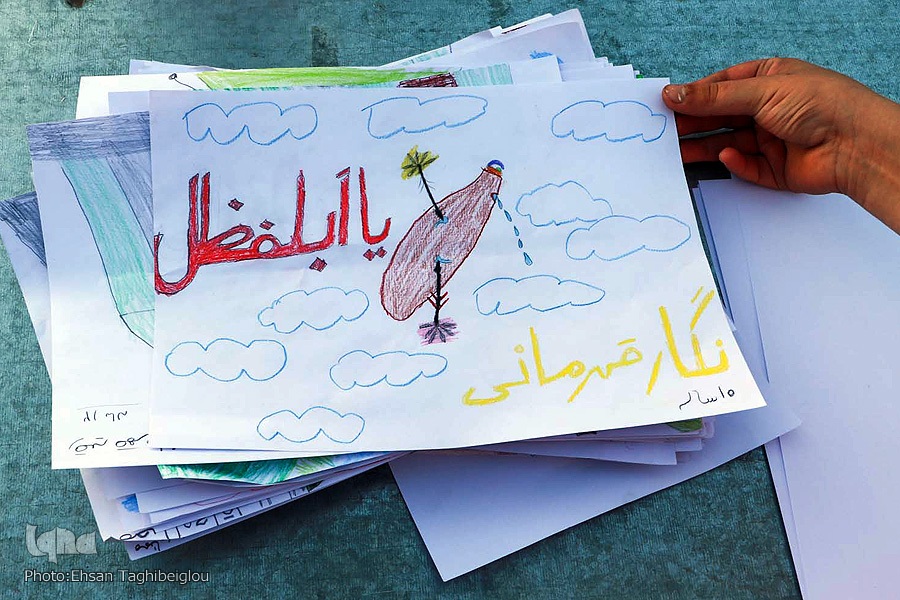 یا ابلفظل
نگار قهرمانی
۱۵ ساله
iqna
Photo:Ehsan Taghibeiglou